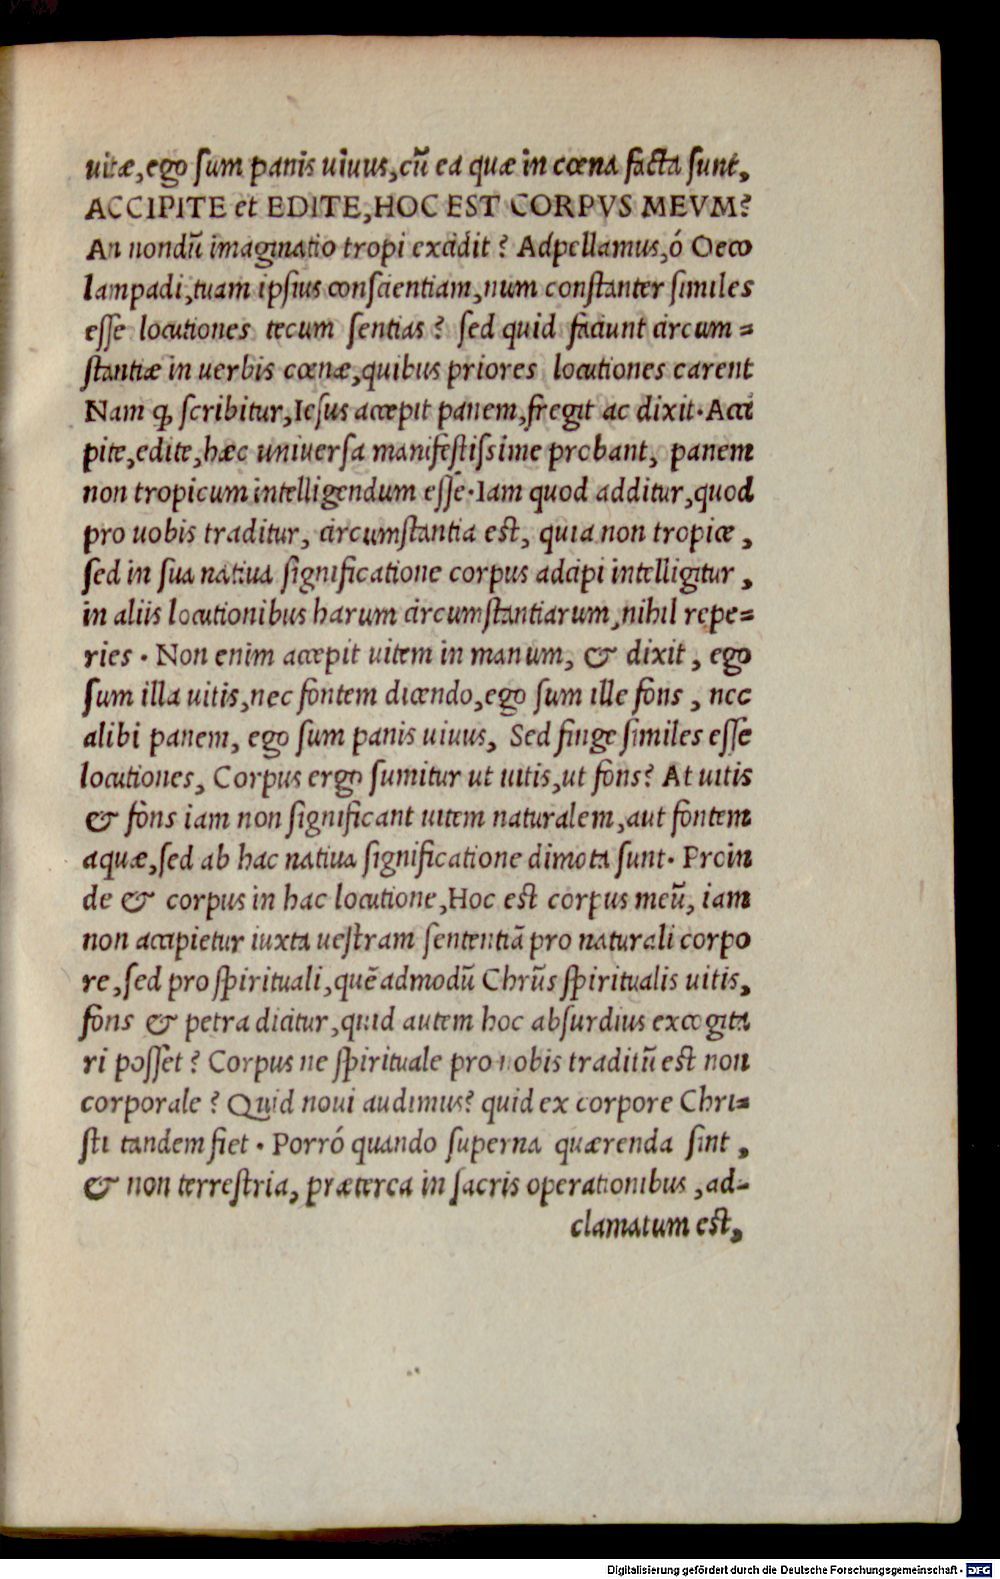 uitæ, ego ſum panis uiuus, cū ea quæ in cœna facta ſunt,
ACCIPITE et EDITE, HOC EST CORPVS MEVM?
An nondū imaginatio tropi excidit? Adpellamus, ó Oeco
lampadi, tuam ipſius conſcientiam, num conſtanter ſimiles
eſſe locutiones tecum ſentias? ſed quid faciunt circum=
ſtantiæ in uerbis cœnæ, quibus priores locutiones carent
Nam ꝙ ſcribitur, Ieſus accepit panem, fregit ac dixit. Acci
pite, edite, hæc uniuerſa manifeſtiſsime probant, panem
non tropicum intelligendum eſſe. Iam quod additur, quod
pro uobis traditur, circumſtantia eſt, quia non tropice,
ſed in ſua natiua ſignificatione corpus adcipi intelligitur,
in aliis locutionibus harum circumſtantiarum, nihil repe=
ries. Non enim accepit uitem in manum, & dixit, ego
ſum illa uitis, nec fontem dicendo, ego ſum ille fons, nec
alibi panem, ego ſum panis uiuus, Sed finge ſimiles eſſe
locutiones, Corpus ergo ſumitur ut uitis, ut fons? At uitis
& fons iam non ſignificant uitem naturalem, aut fontem
aquæ, ſed ab hac natiua ſignificatione dimota ſunt. Proin
de & corpus in hac locutione, Hoc eſt corpus meū, iam
non accipietur iuxta ueſtram ſententiā pro naturali corpo
re, ſed pro ſpirituali, quē admodū Chrūs ſpiritualis uitis,
fons & petra dicitur, quid autem hoc abſurdius excogita
ri poſſet? Corpus ne ſpirituale pro nobis traditū eſt non
corporale? Quid noui audimus? quid ex corpore Chri=
ſti tandem fiet. Porró quando ſuperna quærenda ſint,
& non terreſtria, præterea in ſacris operationibus, ad=
clamatum eſt,
Digitalisierung gefördert durch die Deutsche Forschungsgemeinschaft - DFG